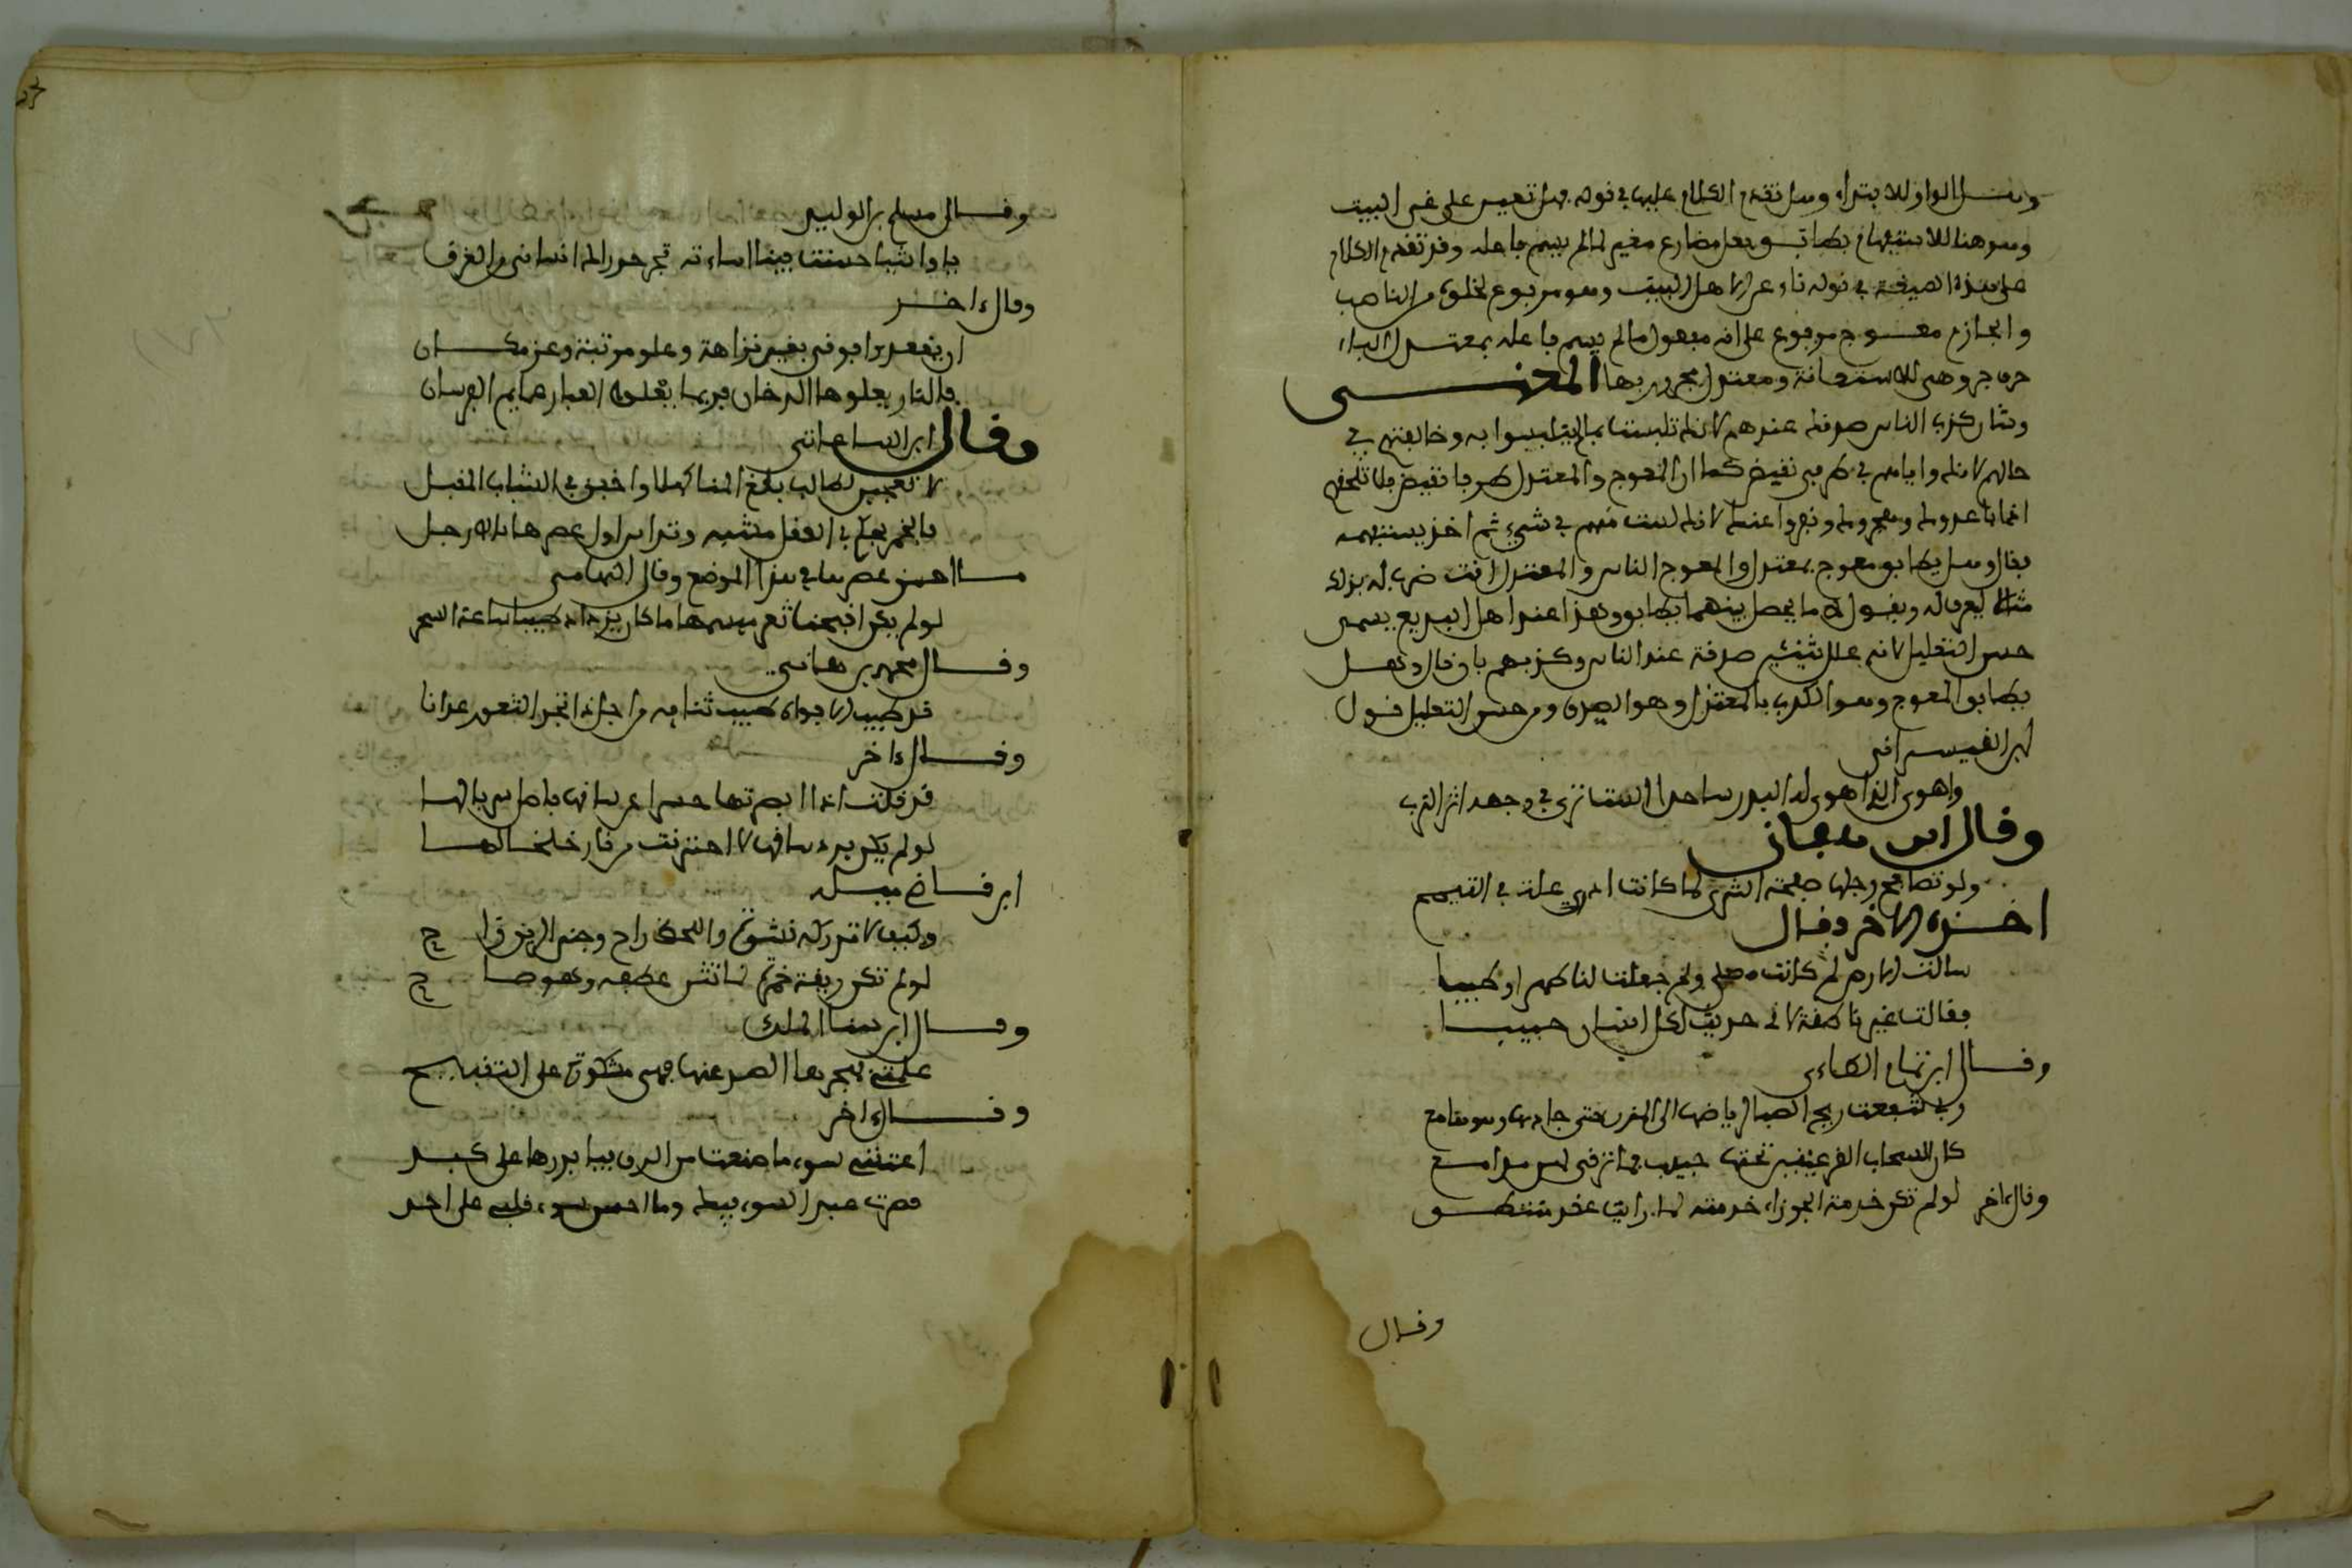 وهل الواو للابتداء وهل تقدم الكلام عليها في قوله فهل تعين على غي البيت
وهو هنا للاستفهام يطابق فعل مضارع مغير لما لم يسم فاعله وقد تقدم الكلام
على هذه الصيغة في قوله ناء عن الاهل البيت وهو مرفوع لخلوه من الناصب
والجازم معوج مرفوع على انه مفعول ما لم يسم فاعله بمعتدل الباء
حرف جر وهي للاستعانة ومعتدل مجرور بها المعنى
وشان كذب الناس صدقك عندهم لانك تلبست بما لم يتلبسوا به وخالفتهم في
حالهم لانك واياهم في طرفي نقيض كما ان المعوج والمعتدل طرفا نقيض فلا تلحقهم
بك ونفروا عنك لانك لست منهم في شيء ثم اخذ يستفهم
فقال وهل يطابق معوج بمعتدل والمعوج الناس والمعتدل انت ضرب له بذلك
مثلا ليعرفك ويقول لك ما يحصل بينهما تطابق وهذا عند اهل البديع يسمى
حسن التعليل لانه علل شيئين صدقه عند الناس وكذبهم بان قال وهل
يطابق المعوج وهو الكذب بالمعتدل وهو الصدق ومن حسن التعليل قول
ابن القيسراني
واهوى الذي اهوى له البدر ساجدا الست ترى في وجهه اثر الترب
وقال ابن
ولو تصافح رجلها صفحة الثرى لما كنت ادري علة في التيمم
اخذه الاخر وقال
سالت الارض لم كانت مصلى ولم جعلت لنا طهرا وطيبا
فقالت غير ناطقة لاني حويت لكل انسان حبيبا
وقال ابو تمام الطاءي
ربى شفعت ريح الصبا لرياضها الى المزن حتى جادها وهو هامع
كان السحاب الغر غيبن تحتها حبيبا فما ترقى لهن مدامع
وقال اخر لو لم تكن خدمة الجوزاء خدمته لما رايت عقد منتطق
وقال
وقال مسلم بن الوليد
يا واشيا حسنت فينا اساءته نجى حذارك انساني من الغرق
وقال اخر
ان يقعدن فوقي بغير نزاهة وعلو مرتبة وعز مكان
فالنار يعلوها الدخان وربما يعلو الغبار عمايم الفرسان
وقال ابن الساعاتي
لا تعجبن لطالب بلغ المنا كهلا واخفق في الشباب المقبل
فالخمر تحكم في العقول مسنة وتداس اول عصرها بالارجل
ما احسن عصرها في هذا الموضع وقال التهامي
لو لم يكن اقحوانا ثغر مبسمها ما كان يزداد طيبا ساعة السحر
وقال محمد بن هاني
قد طيب الافواه طيب ثنايه من اجل ذا تجد الثغور عذابا
وقال اخر
قد قلت اذ ابصرتها حسرا عن ساقها
لو لم يكن برد ساقها لاحترقت من نار خلخالها
ابن قاضي ميلة
وكيف لا تدركه نشوة واللحظ راح وجنى الريق راح
لو لم تكن ريقته خمرة لما تثنى عطفه وهو صاح
وقال ابن سنا الملك
علمتني بهجرها الصبر عنها فهي مشكورة على التقبيح
وقال اخر
اعتقني سوء ما صنعت من الرق فيا بردها على كبدي
فصرت عبدا للسوء فيك وما احسن سوء قبلي على احد